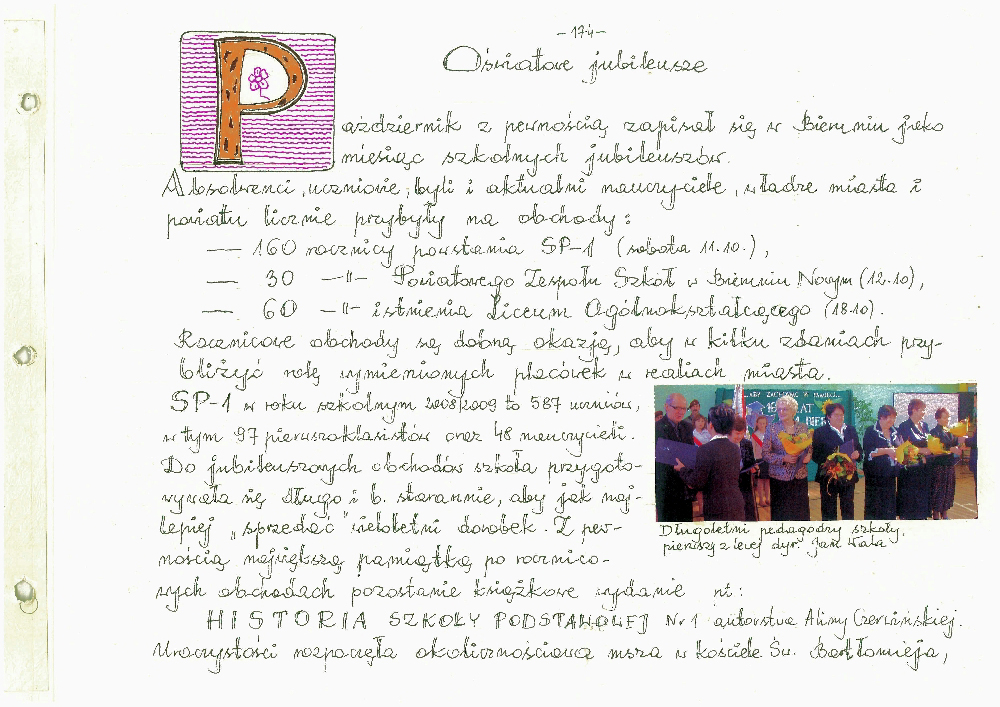 - 174 -
Oświatowe jubileusze
Październik z pewnością zapisał się w Bieruniu jako
miesiąc szkolnych jubileuszów.
Absolwenci, uczniowie, byli i aktualni nauczyciele, władze miasta i
powiatu licznie przybyły na obchody:
— 160 rocznicy powstania SP-1 (sobota 11.10.),
— 30 —"— Powiatowego Zespołu Szkół w Bieruniu Nowym (12.10),
— 60 —"— istnienia Liceum Ogólnokształcącego (18.10).
Rocznicowe obchody są dobrą okazją, aby w kilku zdaniach przy-
bliżyć rolę wymienionych placówek w realiach miasta.
SP-1 w roku szkolnym 2008/2009 to 587 uczniów,
w tym 97 pierwszoklasistów oraz 48 nauczycieli.
Do jubileuszowych obchodów szkoła przygoto-
wywała się długo i b. starannie, aby jak naj-
lepiej „sprzedać" wieloletni dorobek. Z pew-
nością największą pamiątką po rocznico-
wych obchodach pozostanie książkowe wydanie nt:
HISTORIA SZKOŁY PODSTAWOWEJ Nr 1 autorstwa Aliny Czerwińskiej.
Uroczystości rozpoczęła okolicznościowa msza w kościele Św. Bartłomieja,
...ABY ZACHOWAĆ W PAMIĘCI...
160 LAT
Długoletni pedagodzy szkoły,
pierwszy z lewej dyr. Jan Wala